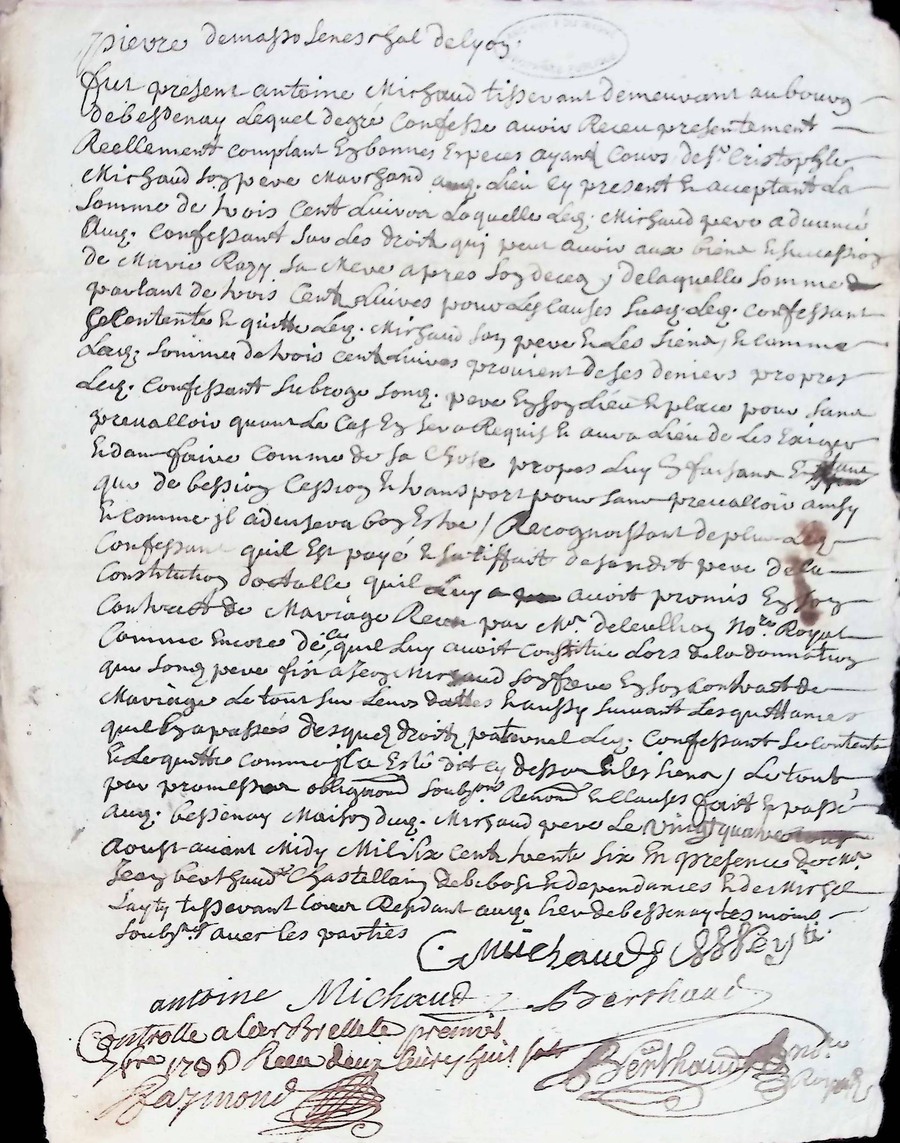 pierre demasso seneschal delyon
fut present antoine Michaud tisserant demeurant au bourg
debessenay Lequel degré Confesse avoir Receu presentement
Reellement comptant En bonnes Especes ayant Cours de sr. Cristophle
Michaud son pere Marchand audq. Lieu cy present & acceptant La
somme de trois Cent Livres Laquelle Leq. Michaud pere a advancé
Auq. Confessant sur Les droits qui peut avoir aux biens & succession
de Marie Razy sa Mere apres son deces, delaquelle somme
partant de trois Cent Livres pour Les clauses susq. Leq. Confessant
se Contente & quitte Leq. Michaud son pere & Les siens, & comme
Laq. somme de trois cent Livres provient de ses deniers propres
Leq. Confessant subroge sonq. pere En son Lieu & place pour sans
prevalloir quant Le Cas En sera Requis & aura Lieu de Les Exiger
& dans faire Comme de sa Chose propres Luy En faisant
que de bession Cession & transport pour sans prevalloir ainsy
& comme Il advisera bon Estre / Recognoissant de plus Leq
Confessant quil Est payé & satisfait desondit pere de la
Constitution dotalle quil Luy avoit promis En son
Contract de Mariage Receu par Mr. Notre. Royal
Comme Encores de ce quil Luy avoit Constitué Lors de la donnation
que sonq pere fist a Jean Michaud son frere En son Contract de
Mariage Le tout sur Leurs dattes & aussy suivant Les quittances
quil En a passées desquels droits paternel Leq. Confessant se contente
& Le quitte comme Il a Esté dit cy dessus & les siens, Le tout
par promesses obligaons soubmons Renonon & Clauses fait & passé
Auq. bessenay Maison dudq. Michaud pere Le vingtquatre
Aoust avant Midy Mil sept Cent trente six En presence de Me
Jean berthaud Chastellain debibost & dependances & de Michel
tisserant Residant auq. lieu de bessenay tesmoins
soubsnes avec les parties
C Michaud
antoine Michaud Berthaud
Controlle a Larbrelle le premier
7bre 1736 Receu deux livres huit sols
Raymond Berthaud nore Royal